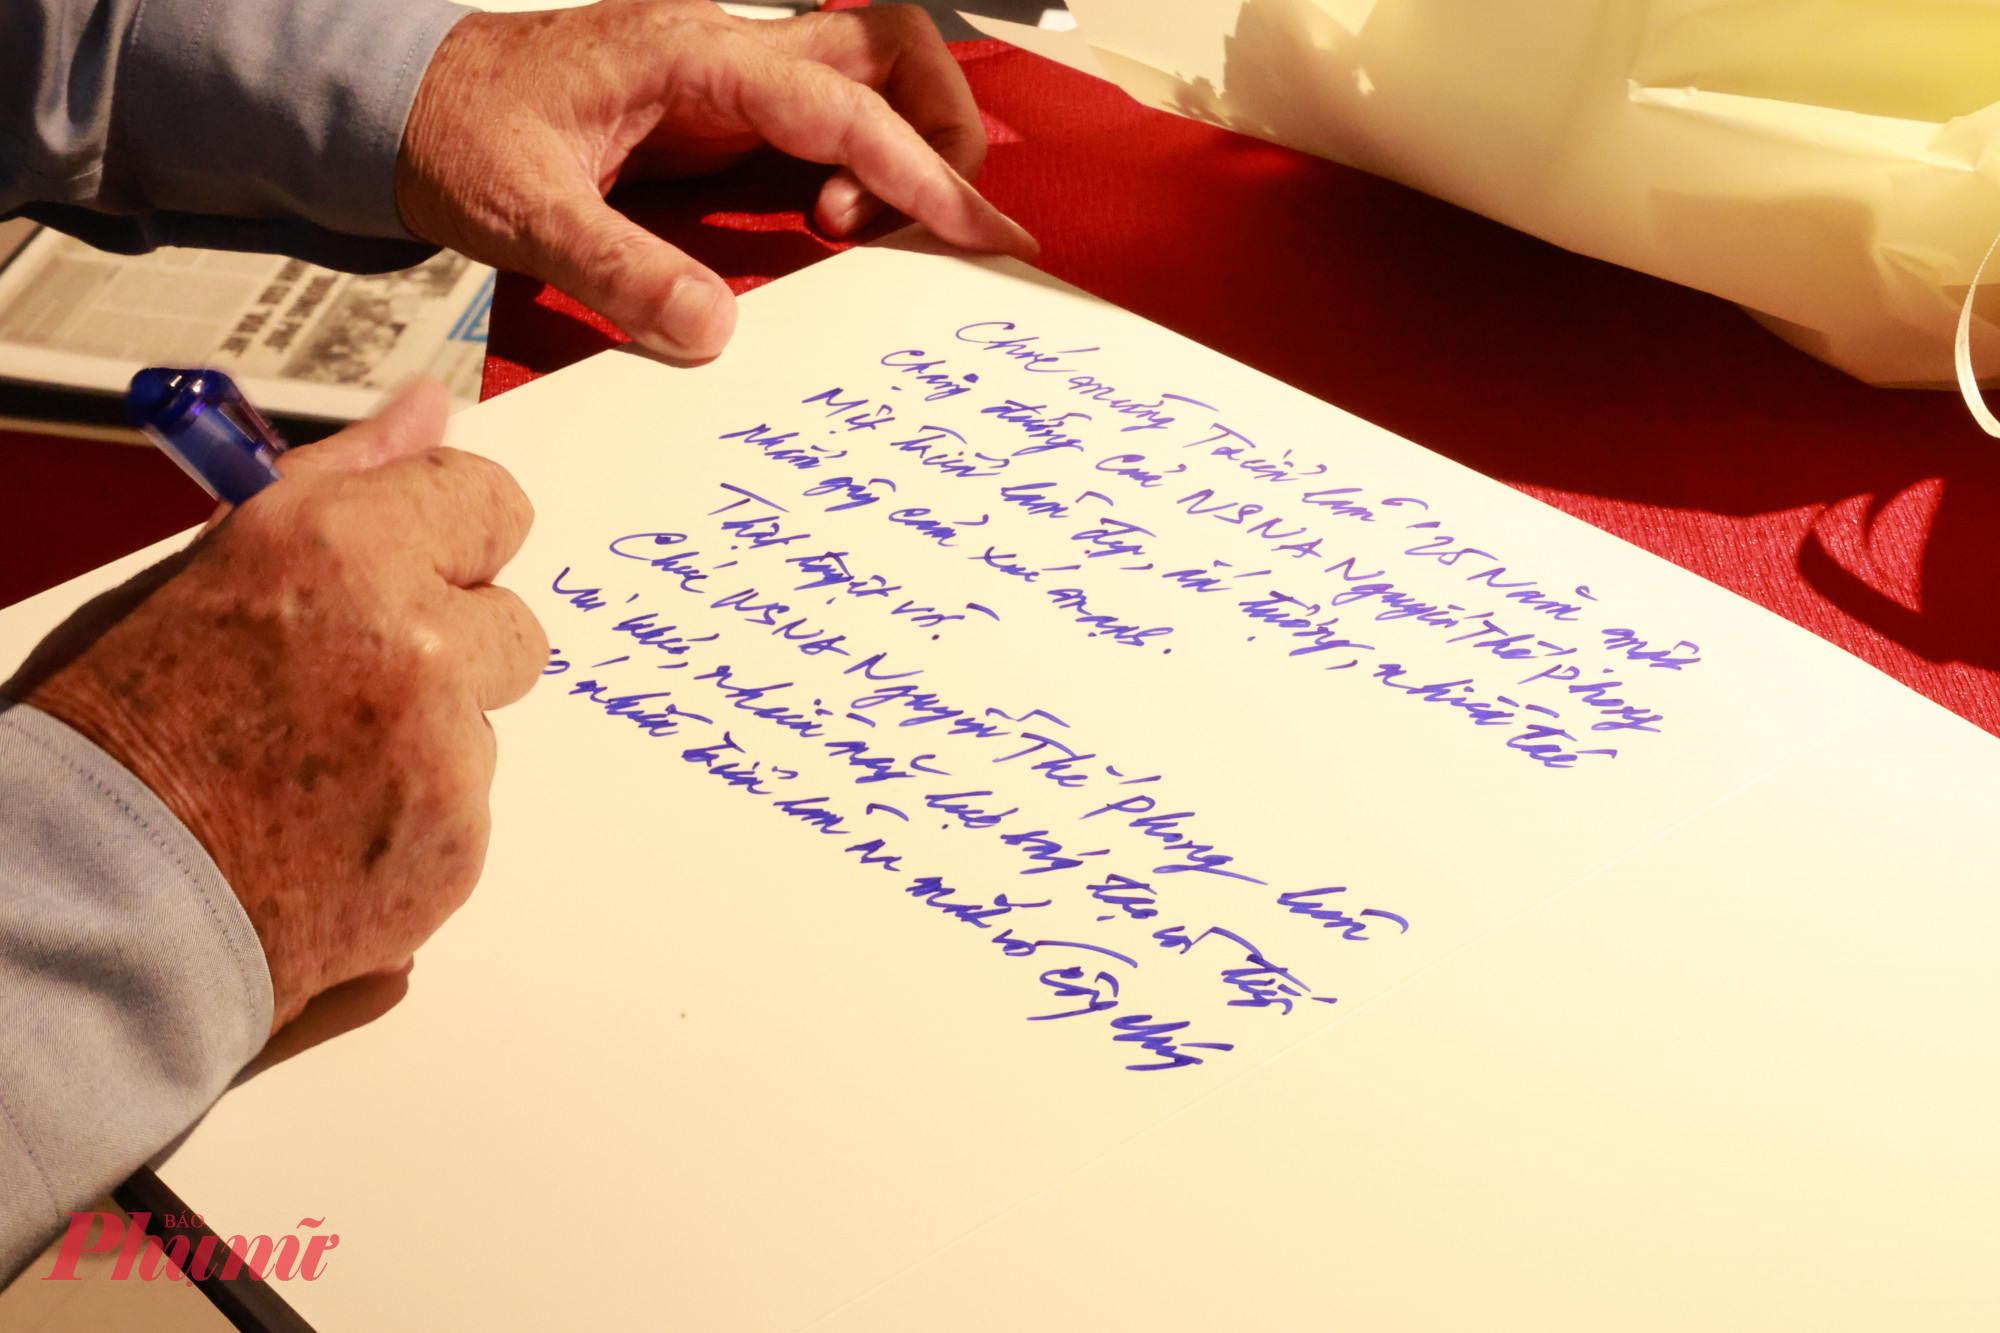 Chúc mừng Triển lãm "25 Năm một
chặng đường của NSNA Nguyễn Thế Phong
Một triển lãm đẹp, ấn tượng, nhiều tác
phẩm gây cảm xúc mạnh.
Thật tuyệt vời.
Chúc NSNA Nguyễn Thế Phong luôn
vui khỏe, nhiều năng lực sáng tạo và tiếp
có nhiều triển lãm ra mắt với công chúng
BÁO
Phụ nữ